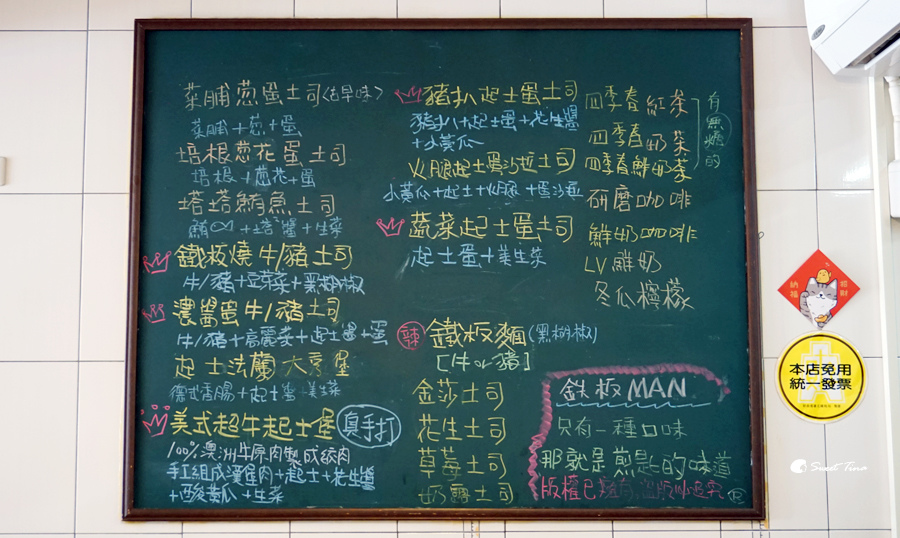 菜脯蔥蛋土司〈古早味〉
菜脯+蔥+蛋
培根蔥花蛋土司
培根+蔥花+蛋
塔塔鮪魚土司
鮪+塔醬+生菜
鐵板燒牛/豬土司
牛/豬+豆芽菜+黑胡椒
濃醬蛋牛/豬土司
牛/豬+高麗菜+起士醬+蛋
起士法蘭大亨堡
德式香腸+起士醬 美生菜
美式超牛起士堡
真手打
100%澳洲牛原肉製成絞肉
手工組成漢堡肉+起士+花生醬
+酸黃瓜+生菜
豬扒起士蛋土司
豬扒+起士蛋+花生醬
+小黃瓜
火腿起士蛋沙拉土司
小黃瓜+起士+火腿+蛋沙拉
蔬菜起士蛋土司
起士蛋+美生菜
辣 鐵板麵(黑胡椒)
[牛or豬]
金莎土司
花生土司
草莓土司
奶露土司
四季春紅茶
四季春奶茶
四季春鮮奶茶
有無糖的
研磨咖啡
鮮奶咖啡
LV鮮奶
冬瓜檸檬
鉄板MAN
只有一種口味
那就是熟悉的味道
版權已擁有,盜版必追究 R
納福
招財
本店免用
統一發票
Sweet Tina